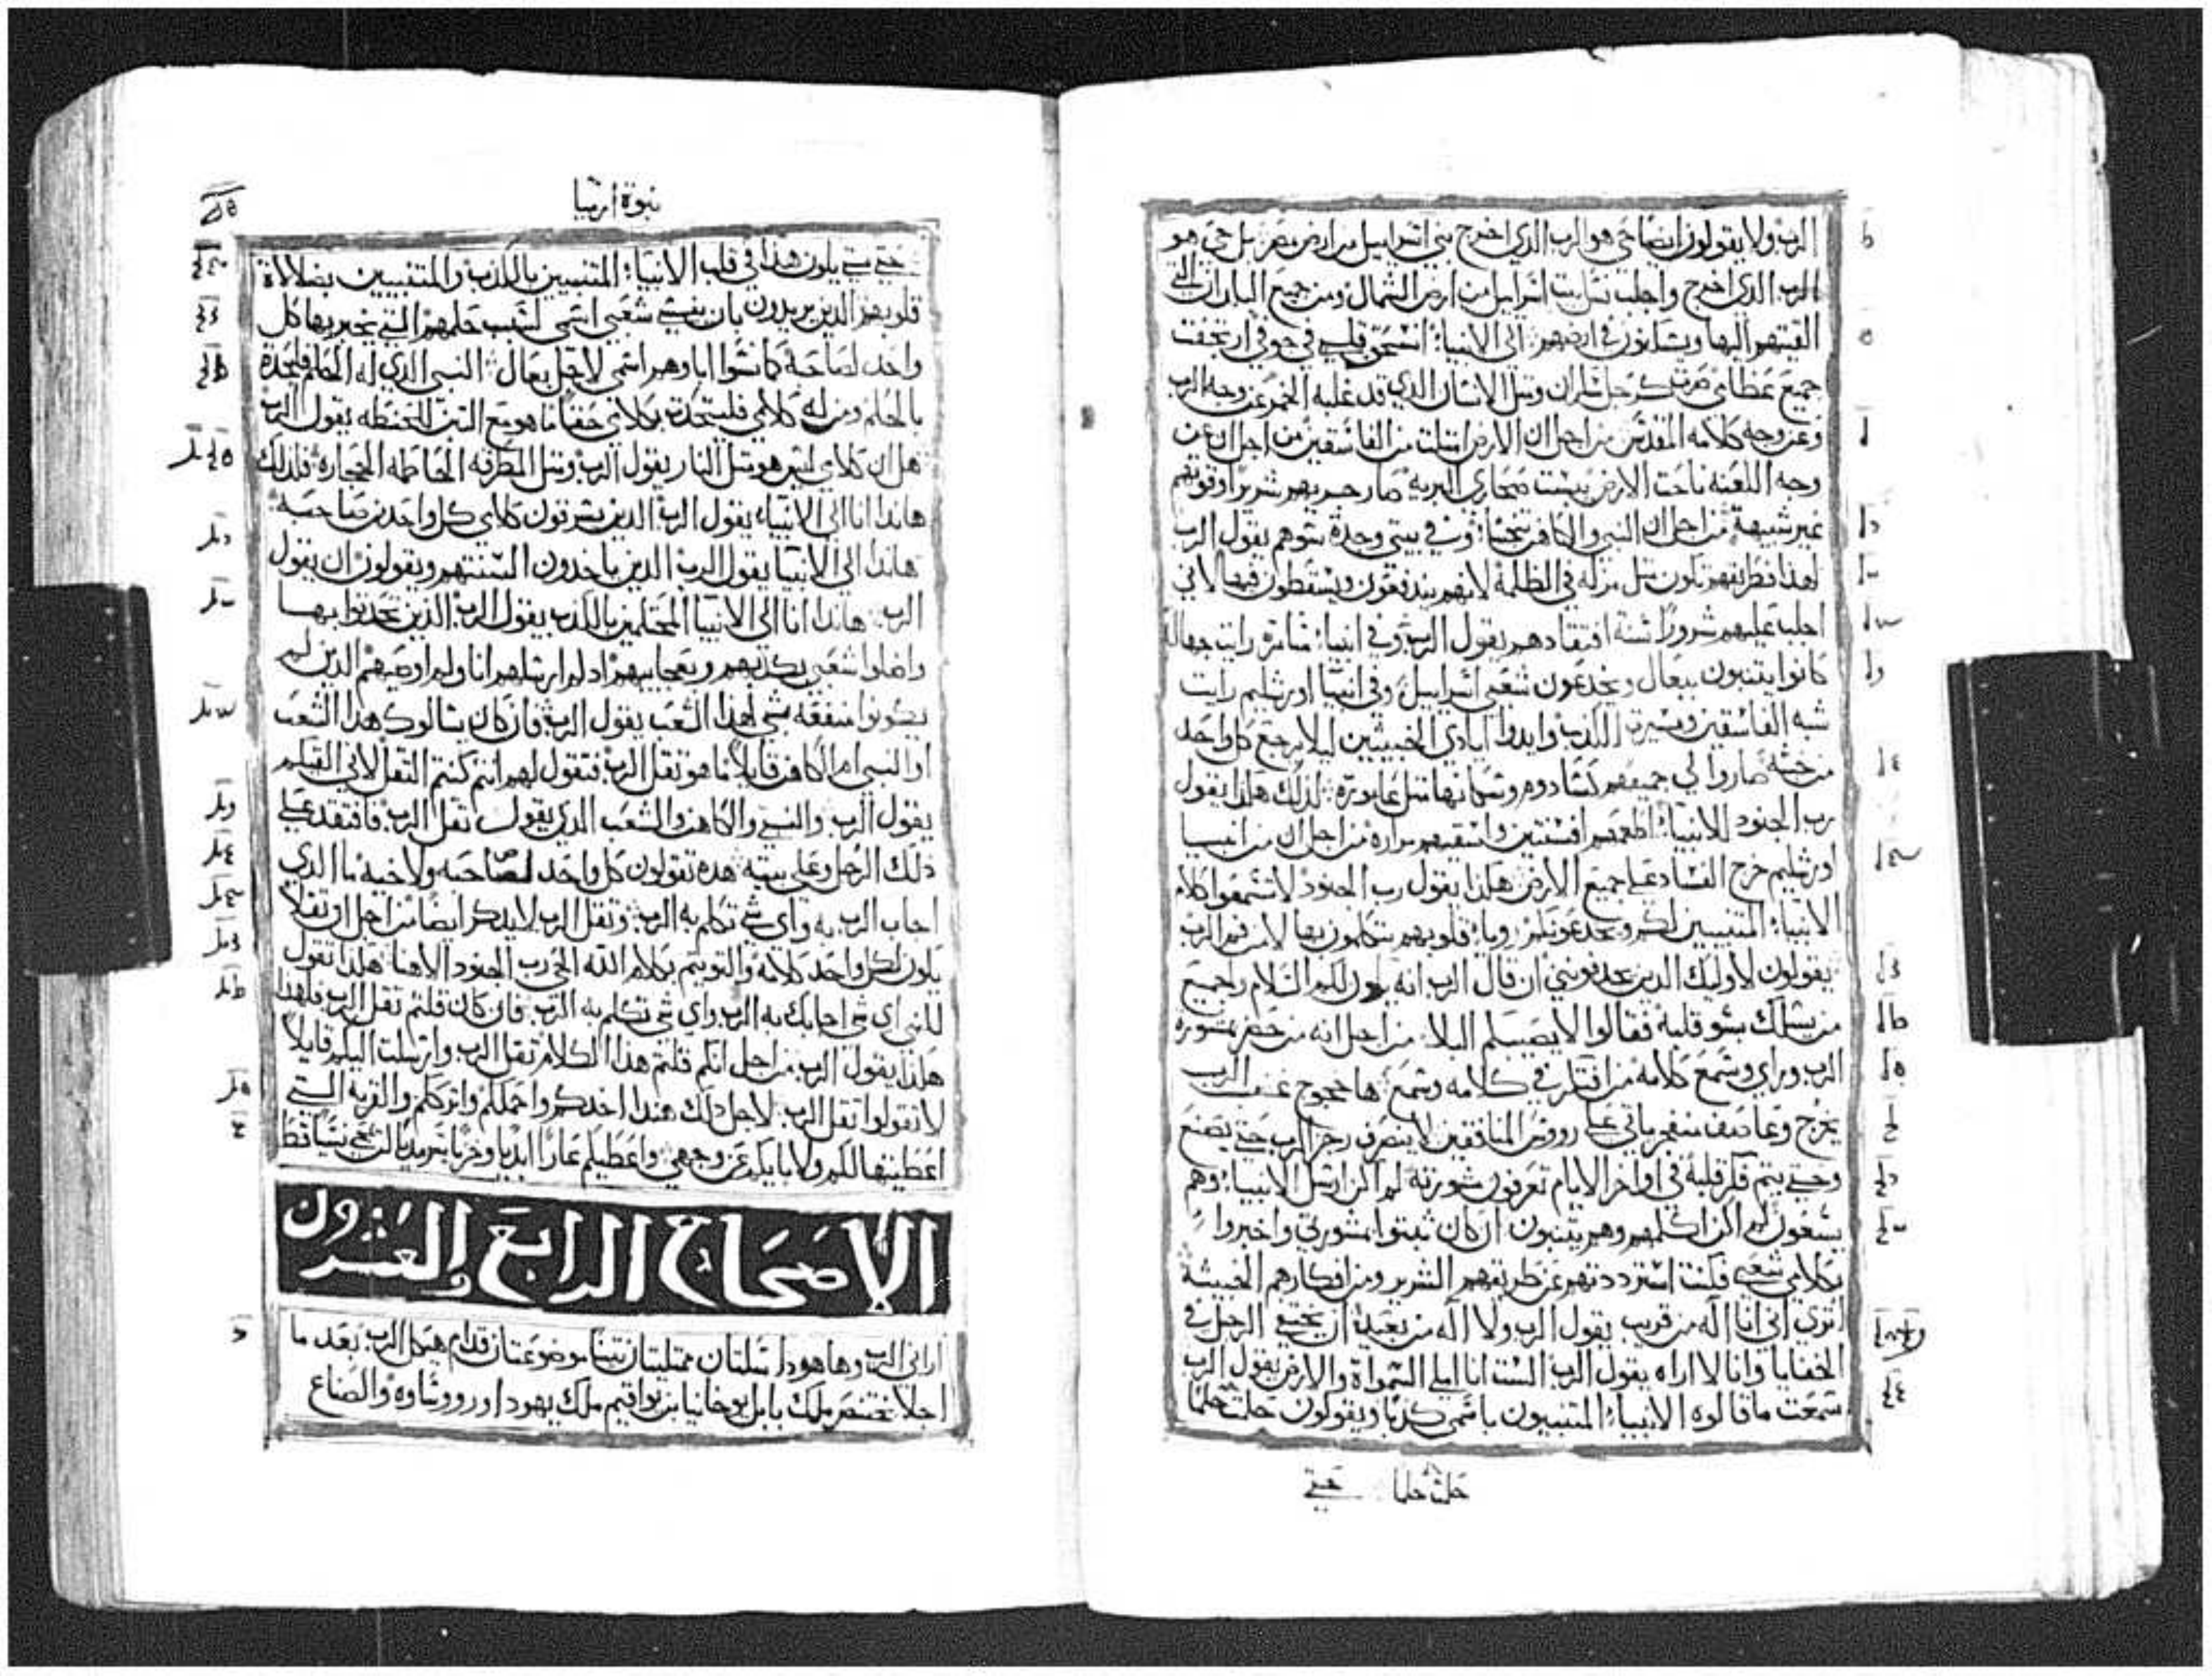 الرب ولا يقولون ايضا حي هو الرب الذي اخرج بني اسراييل من ارض مصر بل حي هو
الرب الذي اخرج واجلب نسل بيت اسراييل من ارض الشمال ومن جميع البلدان التي
القيتهم اليها ويسكنون في ارضهم الى الانبياء انسحق قلبي في جوفي ارتجفت
جميع عظامي صرت كرجل سكران ومثل الانسان الذي قد غلبه الخمر عن وجه الرب
وعن وجه كلامه المقدس من اجل ان الارض امتلت من الفاسقين من اجل ان عن
وجه اللعنه ناحت الارض يبست صحاري البريه صار جريهم شرير وقوتهم
غير شبيهة من اجل ان النبي والكافر تنجسا وفي بيتي وجدة سوهم يقول الرب
لهذا فطريقهم تكون مثل مزله في الظلمة لانهم يندفعون ويسقطون فيها لاني
اجلب عليهم شرورا سنة افتقادهم يقول الرب وفي انبياء سامره رايت جهالة
كانوا يتنبون ببعال ويخدعون شعبي اسراييل وفي انبيا اورشليم رايت
شبه الفاسقين ومسيرة الكذب وايدوا ايادي الخبيثين ليلا يرجع كل واحد
من خبثه صاروا لي جميعهم كسادوم وسكانها مثل عاموره لذلك هكذا يقول
رب الجنود للانبياء اطعمهم افسنتين واسقيهم مراره من اجل ان من انبيا
اورشليم خرج الفساد على جميع الارض هكذا يقول رب الجنود لا تسمعوا كلام
الانبياء المتنبيين لكم ويخدعونكم وريا قلوبهم يتكلمون بها لا من فم الرب
يقولون لاوليك الذين يجدفوني ان قال الرب انه يكون لكم السلام ولجميع
من يسلك بسو قلبه فقالوا لا يصيبكم البلاء من اجل انه من حضر بمشورة
الرب وراي وسمع كلامه من افتكر في كلامه وسمع ها عجوج غضب الرب
يخرج وعاصف منفجر ياتي على رووس المنافقين لا ينصرف رجز الرب حتى يصنع
وحتى يتم فكر قلبه في اواخر الايام تعرفون مشورته لم اكن ارسل الانبياء وهم
يسعون لم اكن اكلمهم وهم يتنبون ان كان ثبتوا بمشورتي واخبروا
بكلامي شعبي فكنت استرددتهم عن طريقهم الشرير ومن افكارهم الخبيثة
اترى اني انا اله من قريب يقول الرب ولا اله من بعيد ان يختفي الرجل في
الخفايا وانا لا اراه يقول الرب الست انا املي السمواة والارض يقول الرب
سمعت ما قالوه الانبياء المتنبيون باسمي كذبا ويقولون حلمت حلما
حلمت حلما حتى
نبوة ارميا
حتى متى يكون هذا في قلب الانبياء المتنبيين بالكذب والمتنبيين بضلالة
قلوبهم الذين يريدون بان ينسى شعبي اسمي لسبب حلمهم التي يخبر بها كل
واحد لصاحبه كما نسوا اباوهم اسمي لاجل بعال النبي الذي له الحلم فليحدث
بالحلم ومن له كلامي فليتحدث بكلامي حقا ما هو مع التبن للحنطه يقول الرب
هل ان كلامي ليس هو مثل النار يقول الرب ومثل المطرقه الحاطمه الحجاره فلذلك
هاندا انا الى الانبياء يقول الرب الذين يسرقون كلامي كل واحد من صاحبه
هاندا الى الانبيا يقول الرب الذين ياخدون السنتهم ويقولون ان يقول
الرب هاندا انا الى الانبيا المحتلمين بالكذب يقول الرب الذين تحدثوا بها
واضلوا شعبي بكذبهم وبعجايبهم اد لم ارسلهم انا ولم اوصيهم الدين لم
يكونوا منفعه شي لهذا الشعب يقول الرب فان كان سالوك هذا الشعب
او النبي ام الكافر قايلا ما هو ثقل الرب فتقول لهم انتم كنتم الثقل لاني القيكم
يقول الرب والنبي والكاهن والشعب الذي يقول ثقل الرب فافتقد على
ذلك الرجل وعلى بيته هده تقولون كل واحد لصاحبه ولاخيه ما الدي
اجاب الرب به واي شي تكلم به الرب وثقل الرب لا يدكر ايضا من اجل ان ثقلا
يكون لكل واحد كلامه والتويتم بكلام الله الحي رب الجنود الاهنا هكذا تقول
للنبي اي شي اجابك به الرب واي شي تكلم به الرب فان كان قلتم ثقل الرب فلهذا
هكذا يقول الرب من اجل انكم قلتم هذا الكلام ثقل الرب وارسلت اليكم قايلا
لا تقولوا ثقل الرب لاجل ذلك هندا اخدكم واحملكم واترككم والقريه التي
اعطيتها لكم ولابايكم عن وجهي واعطيكم عارا ابديا وخزيا سرمديا
الاصحاح الرابع والعشرون
اراني الرب وها هودا سلتان ممتليتان تينا موضوعتان قدام هيكل الرب بعد ما
اجلا بختنصر ملك بابل يوخانيا بن يواقيم ملك يهودا ورووساوه والصناع